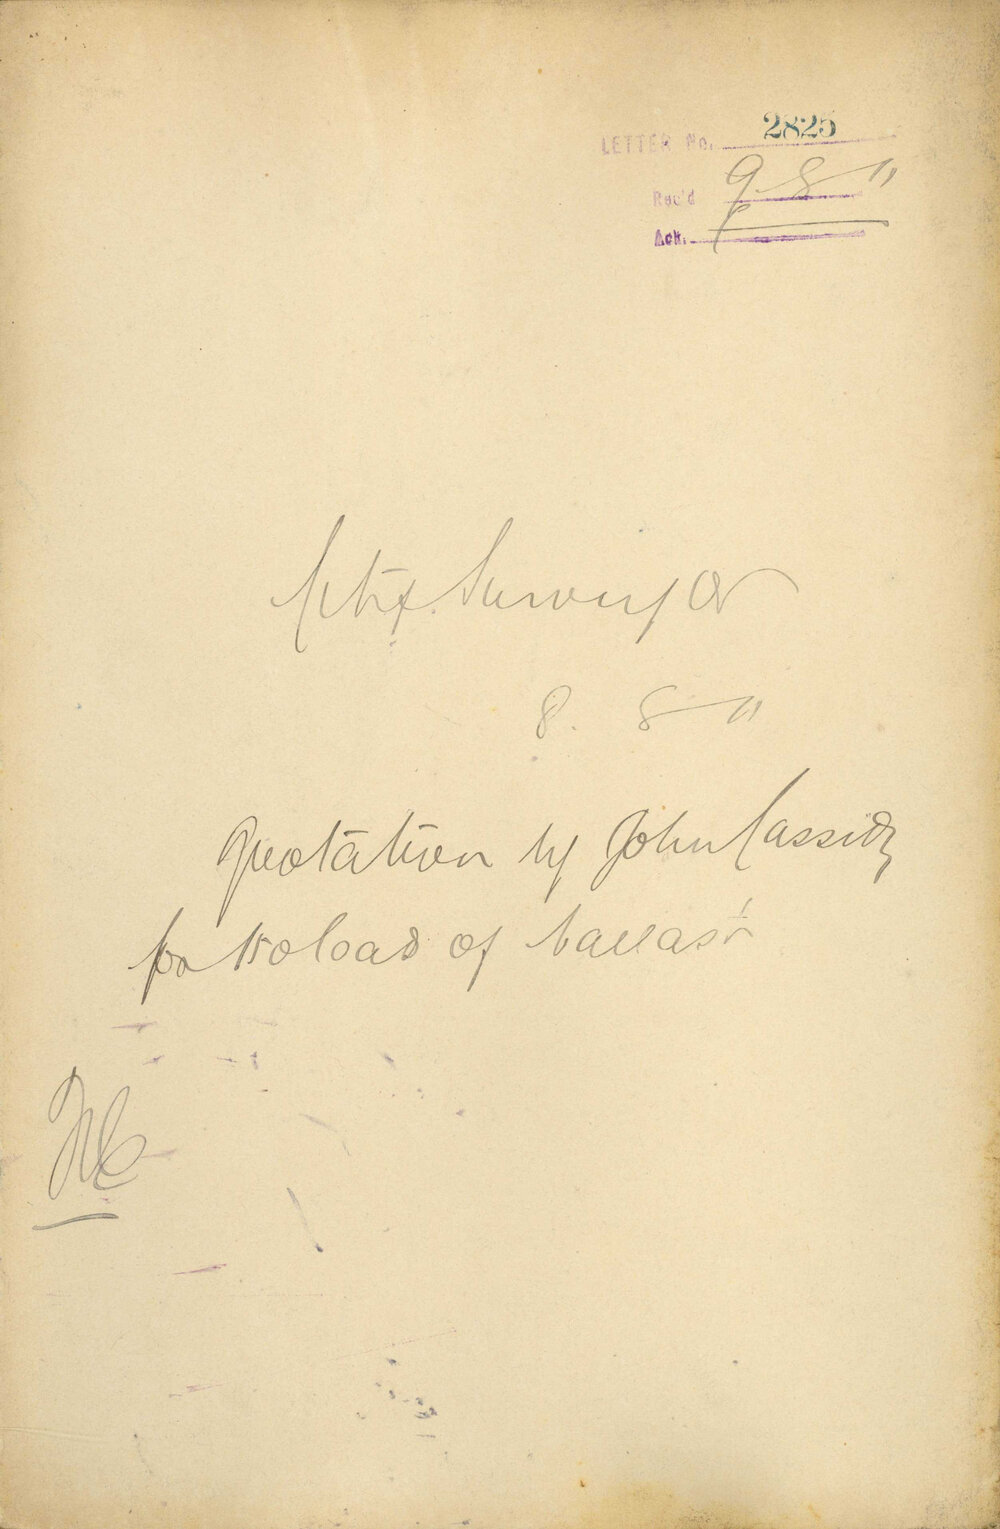 LETTER No. 2825
Rec'd 9. 8 11
Ack.
City Surveyor
8. 8 11
Quotation by John Cassidy
for 150 load of ballast